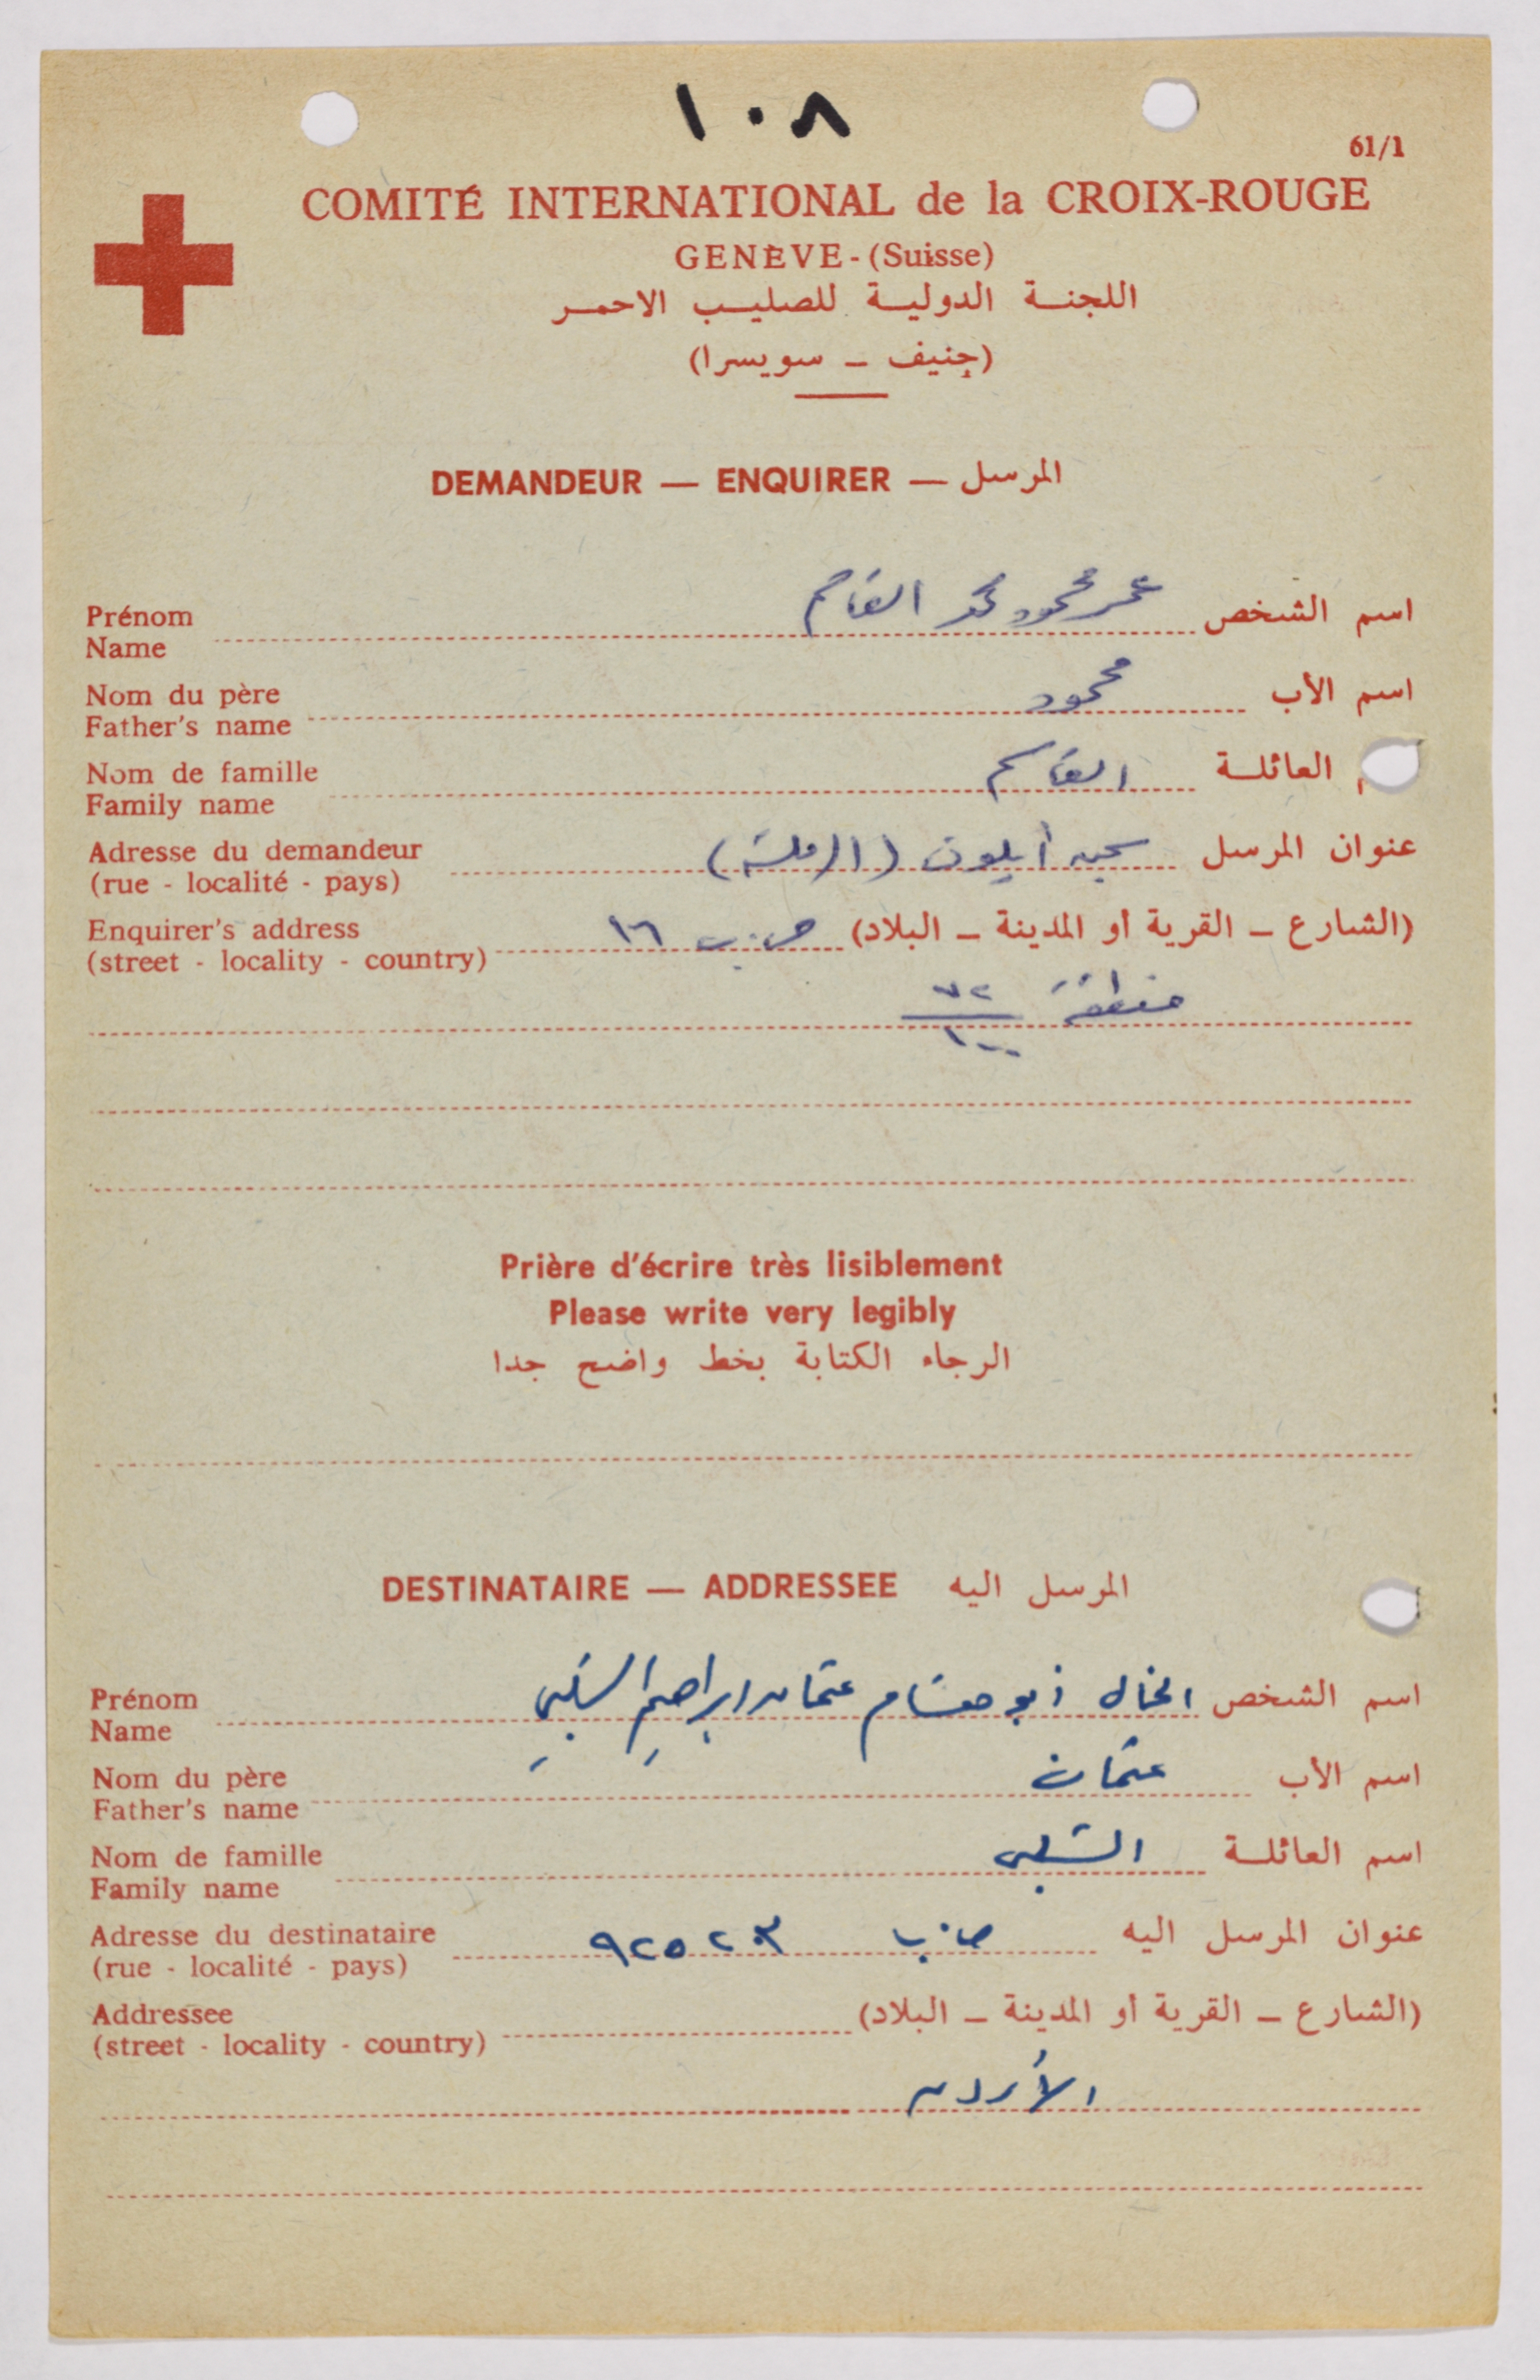 ١٠٨
61/1
COMITÉ INTERNATIONAL de la CROIX-ROUGE
GENÈVE - (Suisse)
اللجنة الدولية للصليب الاحمر
(جنيف ـ سويسرا)
DEMANDEUR — ENQUIRER — المرسل
Prénom
Name
اسم الشخص عمر محمود محمد القاسم
Nom du père
Father's name
اسم الأب محمود
Nom de famille
Family name
م العائلة القاسم
Adresse du demandeur
(rue - localité - pays)
عنوان المرسل سجن أيلون (الرملة)
Enquirer's address
(street - locality - country)
(الشارع ـ القرية أو المدينة ـ البلاد) ص.ب ١٦
منطقة ٧٢
١٠٠
Prière d'écrire très lisiblement
Please write very legibly
الرجاء الكتابة بخط واضح جدا
DESTINATAIRE — ADDRESSEE المرسل اليه
Prénom
Name
اسم الشخص الخال أبو عثمان ابراهيم الشلبي
Nom du père
Father's name
اسم الأب عثمان
Nom de famille
Family name
اسم العائلة الشلبي
Adresse du destinataire
(rue - localité - pays)
عنوان المرسل اليه ص.ب ٩٢٥٢٣
Addressee
(street - locality - country)
(الشارع ـ القرية أو المدينة ـ البلاد)
الأردن